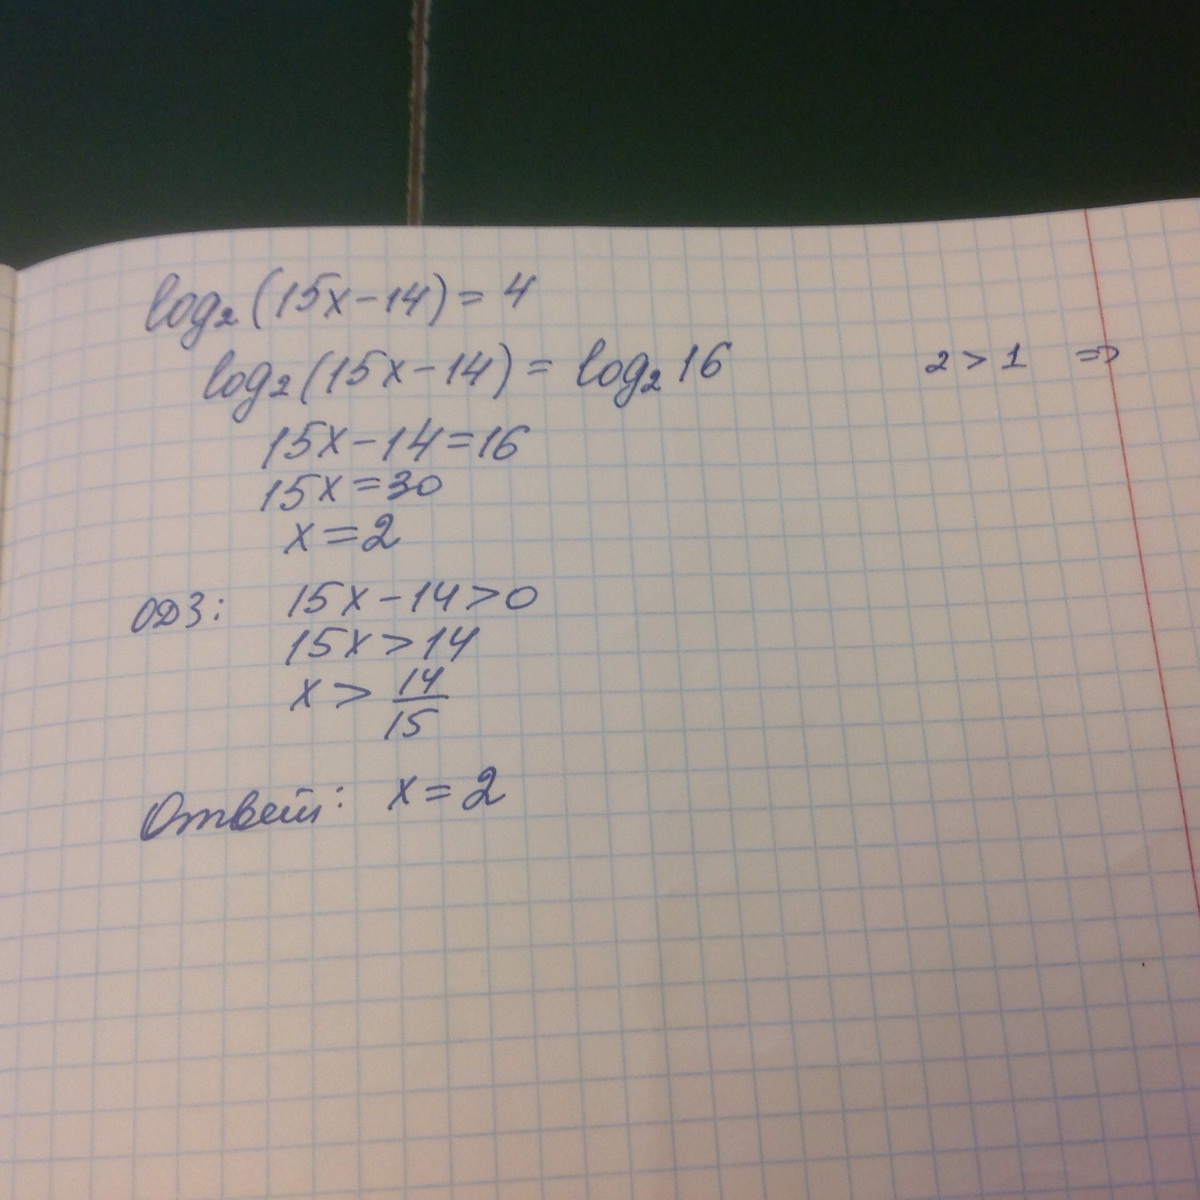 log₂(15x-14)=4
log₂(15x-14)=log₂16 2>1 =>
15x-14=16
15x=30
x=2
ОДЗ: 15x-14>0
15x>14
x> 14/15
Ответ: x=2